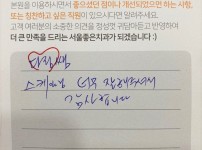 본원을 이용하시면서 좋으셨던 점이나 개선되었으면 하는 사항,
또는 칭찬하고 싶은 직원이 있으시다면 알려주세요.
고객 여러분의 소중한 의견을 정성껏 귀담아듣고 반영하여
더 큰 만족을 드리는 서울좋은치과가 되겠습니다 :)
스케일링 너무 잘해주셔서
감사합니다